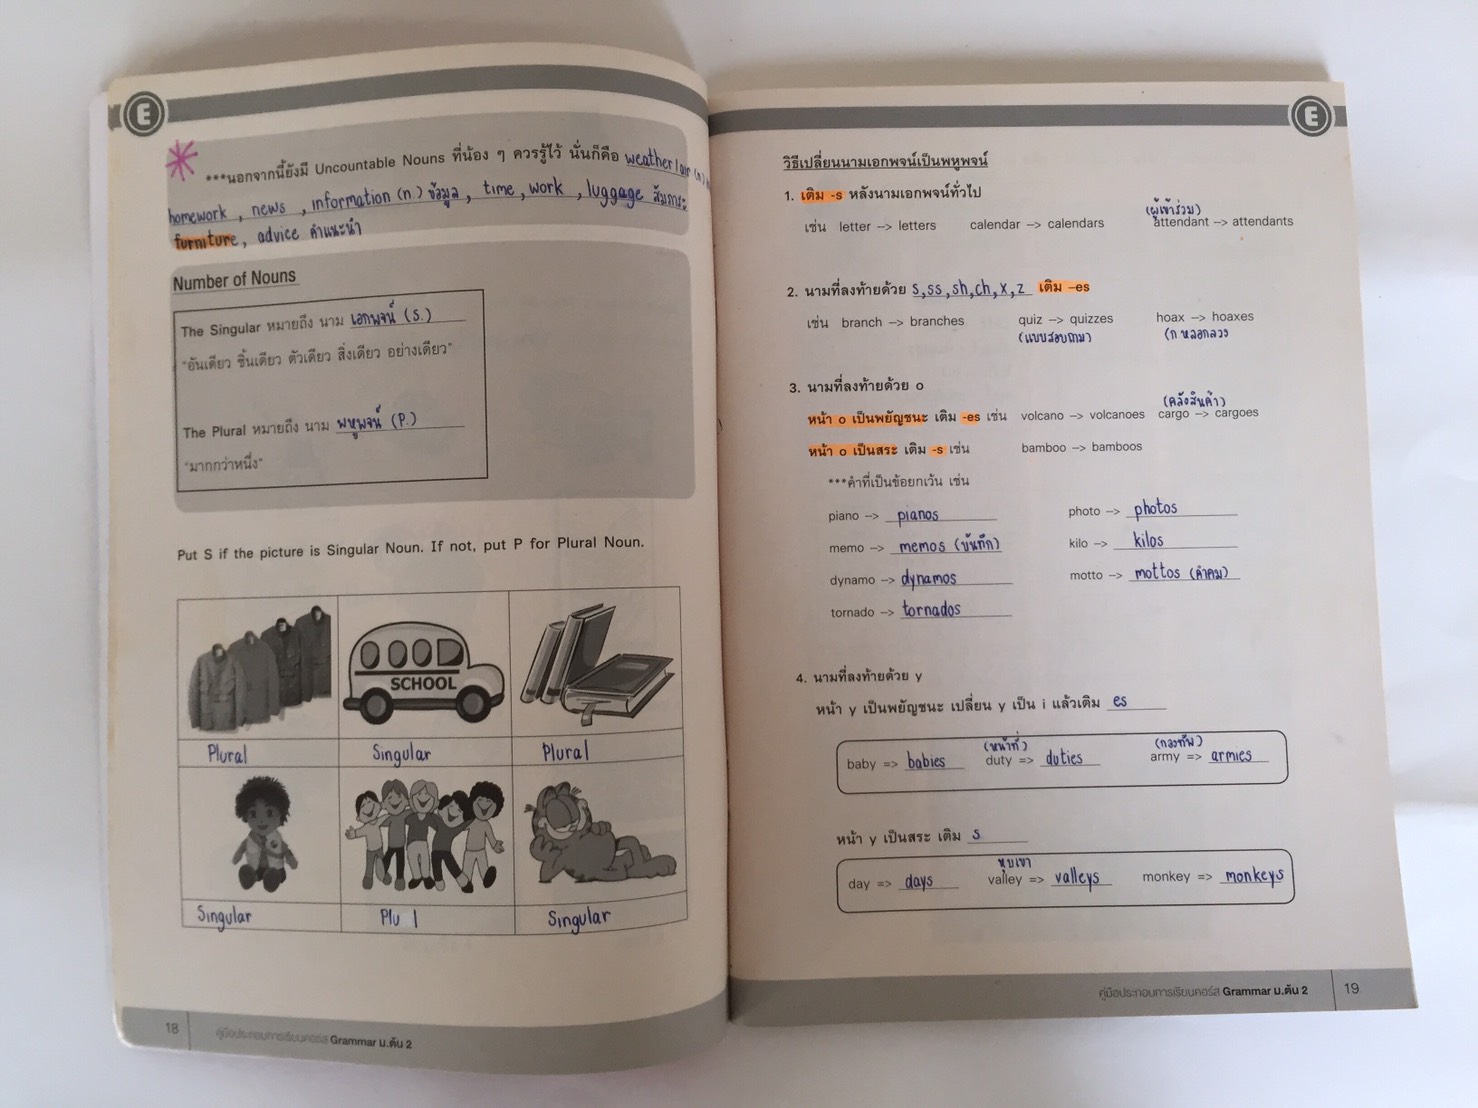 E
***นอกจากนี้ยังมี Uncountable Nouns ที่น้อง ๆ ควรรู้ไว้ นั่นก็คือ weather / air (n)
homework , news , information (n.) ข้อมูล , time , work , luggage สัมภาระ
furniture , advice คำแนะนำ
Number of Nouns
The Singular หมายถึง นาม เอกพจน์ (S.)
"อันเดียว ชิ้นเดียว ตัวเดียว สิ่งเดียว อย่างเดียว"
The Plural หมายถึง นาม พหูพจน์ (P.)
"มากกว่าหนึ่ง"
Put S if the picture is Singular Noun. If not, put P for Plural Noun.
SCHOOL
Plural Singular Plural
Singular Plu l Singular
18 คู่มือประกอบการเรียนคอร์ส Grammar ม.ต้น 2
E
วิธีเปลี่ยนนามเอกพจน์เป็นพหูพจน์
1. เติม -s หลังนามเอกพจน์ทั่วไป
(ผู้เข้าร่วม)
เช่น letter -> letters calendar -> calendars attendant -> attendants
2. นามที่ลงท้ายด้วย s,ss,sh,ch,x,z เติม -es
เช่น branch -> branches quiz -> quizzes hoax -> hoaxes
(แบบสอบถาม) (ก หลอกลวง
3. นามที่ลงท้ายด้วย o
(คลังสินค้า)
หน้า o เป็นพยัญชนะ เติม -es เช่น volcano -> volcanoes cargo -> cargoes
หน้า o เป็นสระ เติม -s เช่น bamboo -> bamboos
***คำที่เป็นข้อยกเว้น เช่น
piano -> pianos photo -> photos
memo -> memos (บันทึก) kilo -> kilos
dynamo -> dynamos motto -> mottos (คำคม)
tornado -> tornados
4. นามที่ลงท้ายด้วย y
หน้า y เป็นพยัญชนะ เปลี่ยน y เป็น i แล้วเติม es
(หน้าที่) (กองทัพ)
baby => babies duty => duties army => armies
หน้า y เป็นสระ เติม s
หุบเขา
day => days valley => valleys monkey => monkeys
คู่มือประกอบการเรียนคอร์ส Grammar ม.ต้น 2 19